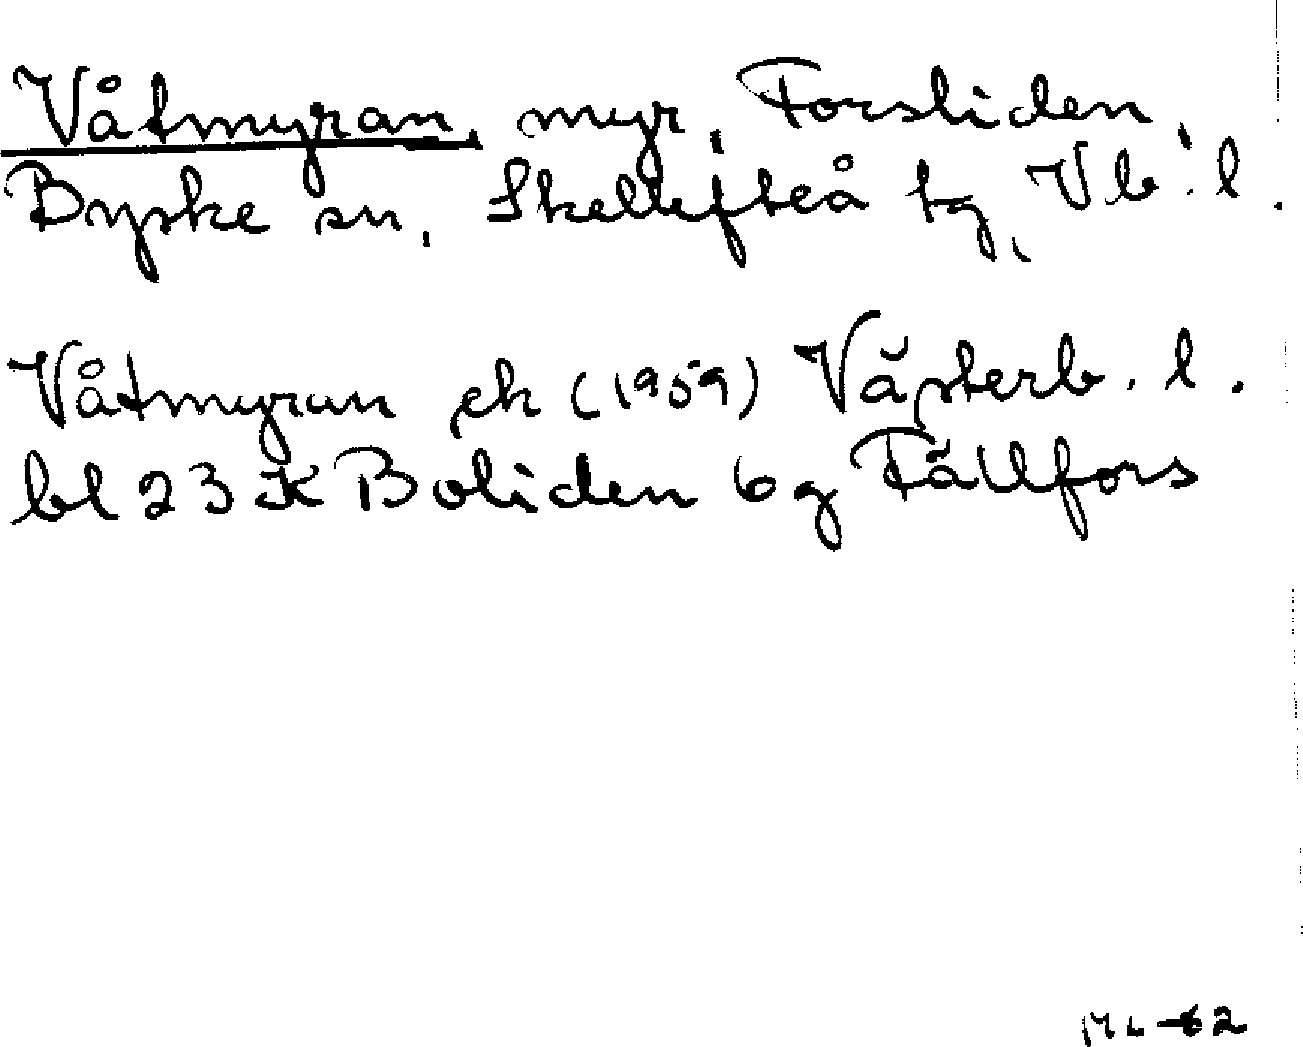 Våtmyran, myr, Forsliden,
Byske sn, Skellefteå tg, Vb. l.
Våtmyran ek (1959) Västerb. l.
bl 23 K Boliden 6 g Fällfors
ML -62